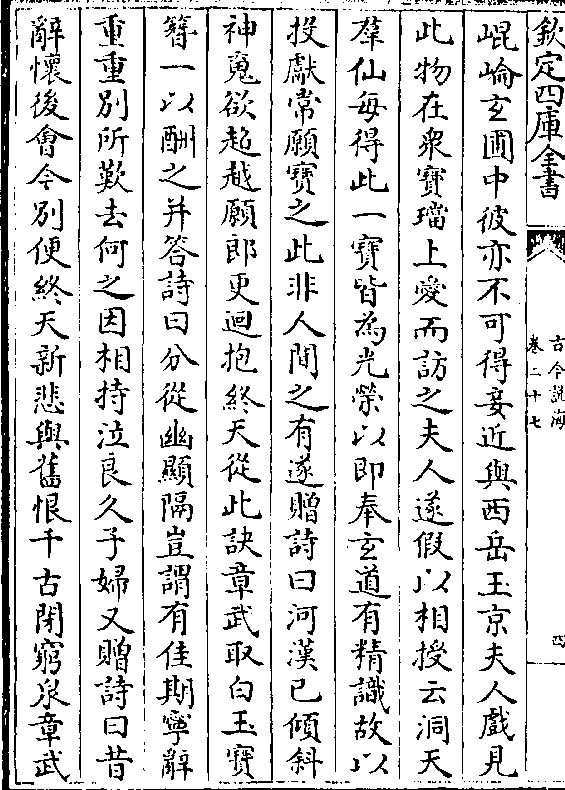 欽定四庫全書
古今說海
卷二十七
四
崐崘玄圃中彼亦不可得妾近與西岳玉京夫人戲見
此物在衆寶璫上愛而訪之夫人遂假以相授云洞天
羣仙每得此一寶皆為光榮以即奉玄道有精識故以
投獻常願寶之此非人間之有遂贈詩曰河漢已傾斜
神䰟欲超越願郎更迴抱終天從此訣章武取白玉寶
簪一以酬之并答詩曰分從幽顯隔豈謂有佳期寧辭
重重別所歎去何之因相持泣良久子婦又贈詩曰昔
辭懷後會今別便終天新悲與舊恨千古閉窮泉章武